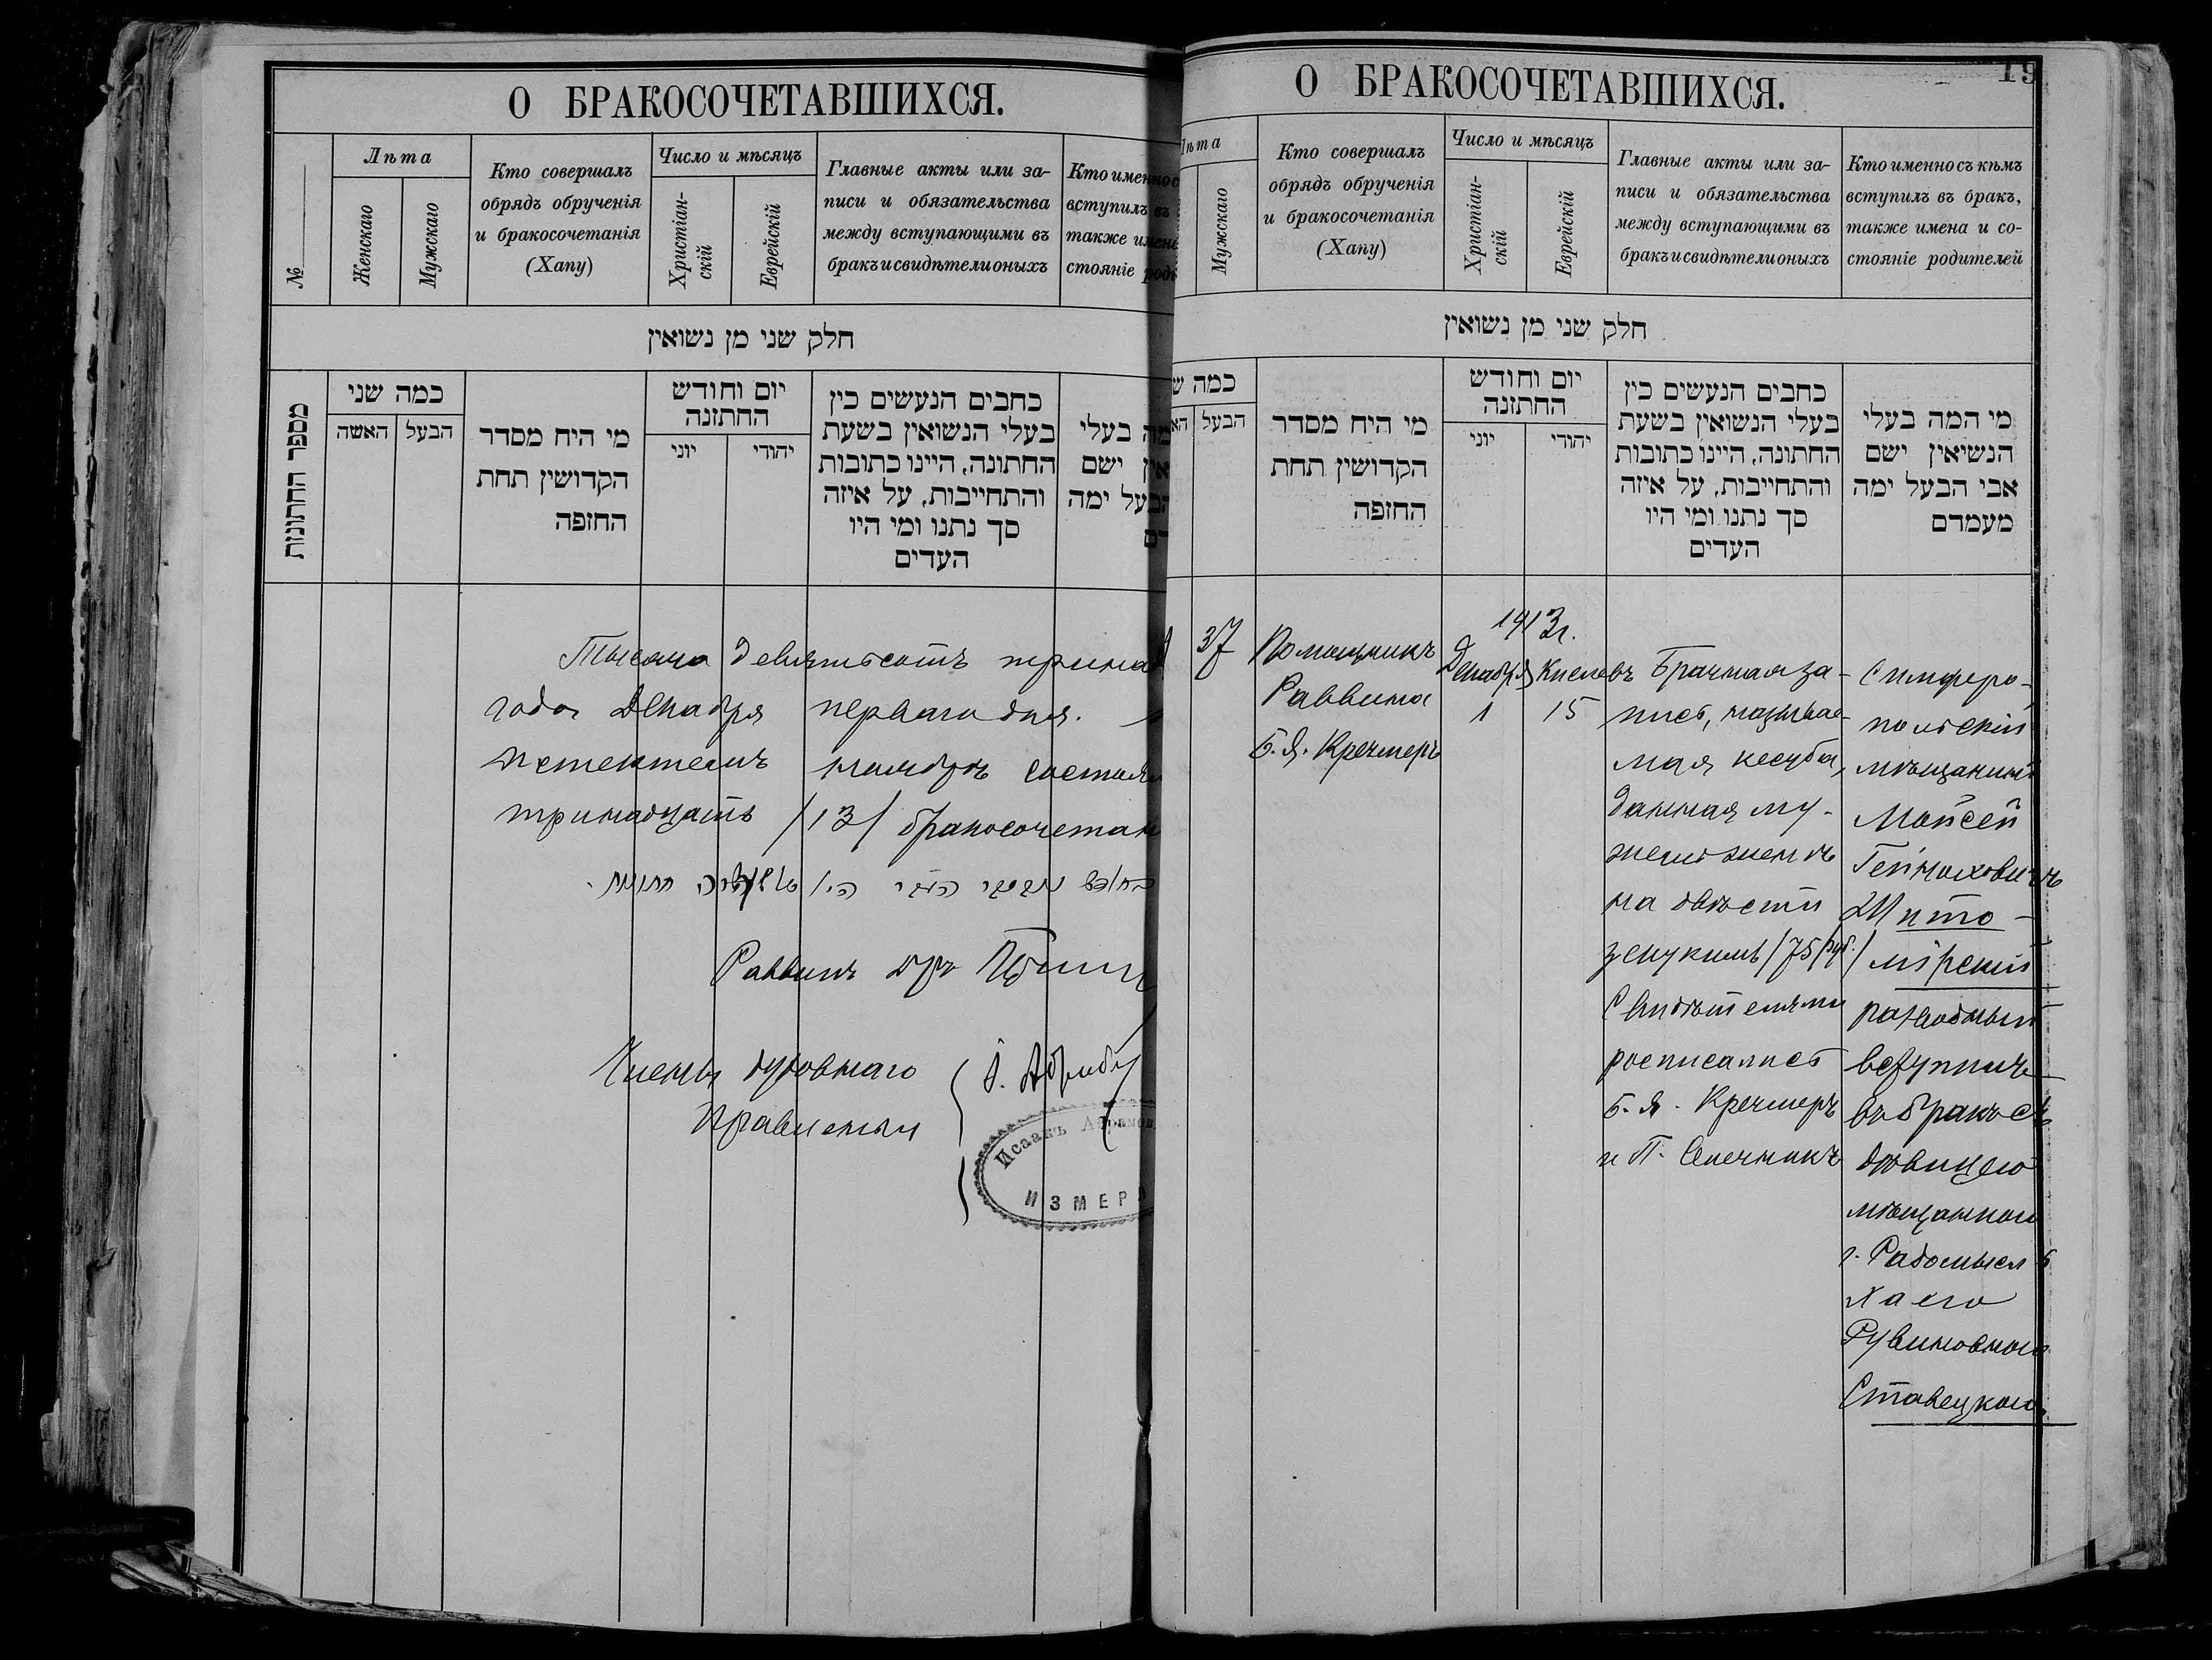 О БРАКОСОЧЕТАВШИХСЯ.
№
Лѣта
Женскаго
Мужскаго
Кто совершалъ
обрядъ обрученія
и бракосочетанія
(Хапу)
Число и мѣсяцъ
Христіан-
скій
Еврейскій
Главные акты или за-
писи и обязательства
между вступающими въ
бракъ и свидѣтели оныхъ
Кто именно с
вступилъ въ
также имена
стояніе роди
חלק שני מן נשואין
מספר החתונות
כמה שני
האשה
הבעל
מי היח מסדר
הקדושין תחת
החופה
יום וחודש
החתונה
יוני
יהודי
כחבים הנעשים כין
בעלי הנשואין בשעת
החתונה, היינו כתובות
והתחייבות, על איזה
סך נתנו ומי היו
העדים
מה בעלי
אין ישם
הבעל ימה
דם
Тысяча девятьсотъ тринад
года Декабря перваго дня.
истекшемъ ноябрѣ состоял
тринадцать /13/ бракосочетан
Раввинъ др
Члены духовнаго
Правленія
Исаакъ Абрамов
ИЗМЕР
19
О БРАКОСОЧЕТАВШИХСЯ.
Лѣта
Мужскаго
Кто совершалъ
обрядъ обрученія
и бракосочетанія
(Хапу)
Число и мѣсяцъ
Христіан-
скій
Еврейскій
Главные акты или за-
писи и обязательства
между вступающими въ
бракъ и свидѣтели оныхъ
Кто именно съ кѣмъ
вступилъ въ бракъ,
также имена и со-
стояніе родителей
חלק שני מן נשואין
כמה ש
הא
הבעל
מי היח מסדר
הקדושין תחת
החופה
יום וחודש
החתונה
יוני
יהודי
כחבים הנעשים כין
בעלי הנשואין בשעת
החתונה, היינו כתובות
והתחייבות, על איזה
סך נתנו ומי היו
העדים
מי המה בעלי
הנשיאין ישם
אבי הבעל ימה
מעמדם
37
Помощникъ
Раввина
Б. Я. Кречмеръ
1913 г.
Декабря
1
Кислевъ
15
Брачная за-
пись, называе-
мая кесуба,
данная му-
жемъ женѣ
на двѣсти
зекукимъ /75 руб./
Свидѣтелями
росписались
Б. Я. Кречмеръ
и П. Слечникъ
Симферо-
польскій
мѣщанинъ
Мойсей
Гейноховичъ
Жито-
мірскій
разводный
вступилъ
въ бракъ съ
дѣвицею
мѣщанкою
г. Радомысля
Хаею
Рувиновною
Ставецкою.